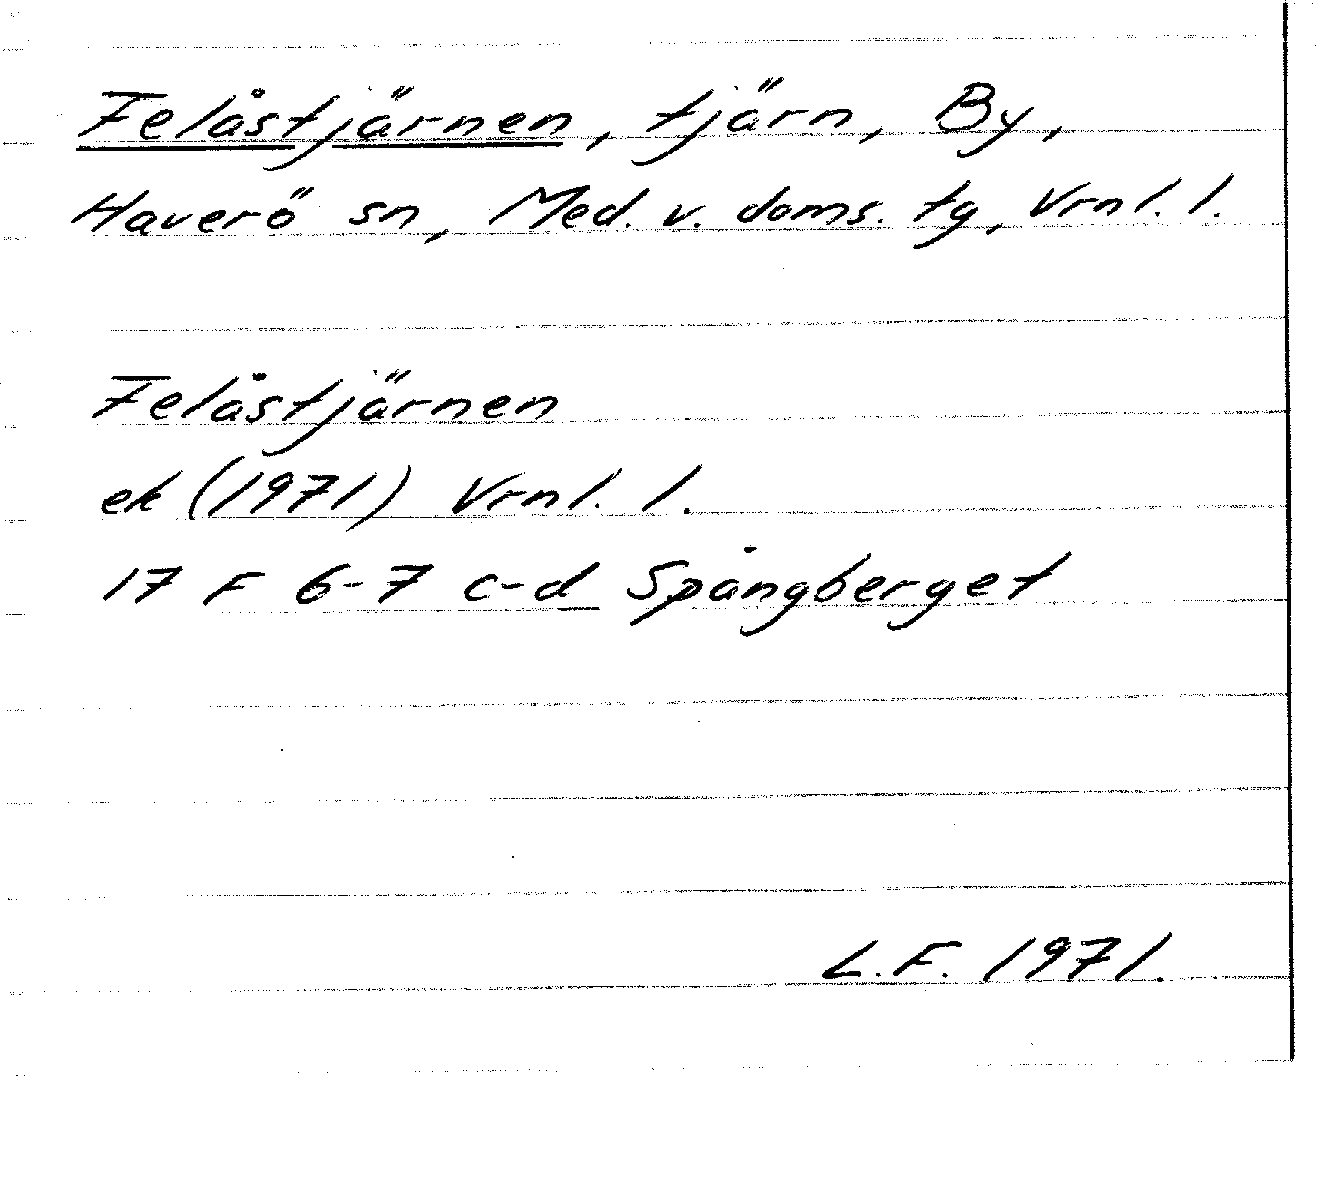 Felåstjärnen, tjärn, By,
Haverö sn, Med. v. doms. tg, Vrnl. l.
Felåstjärnen
ek (1971) Vrnl. l.
17 F 6-7 c-d Spångberget
L.F. 1971.